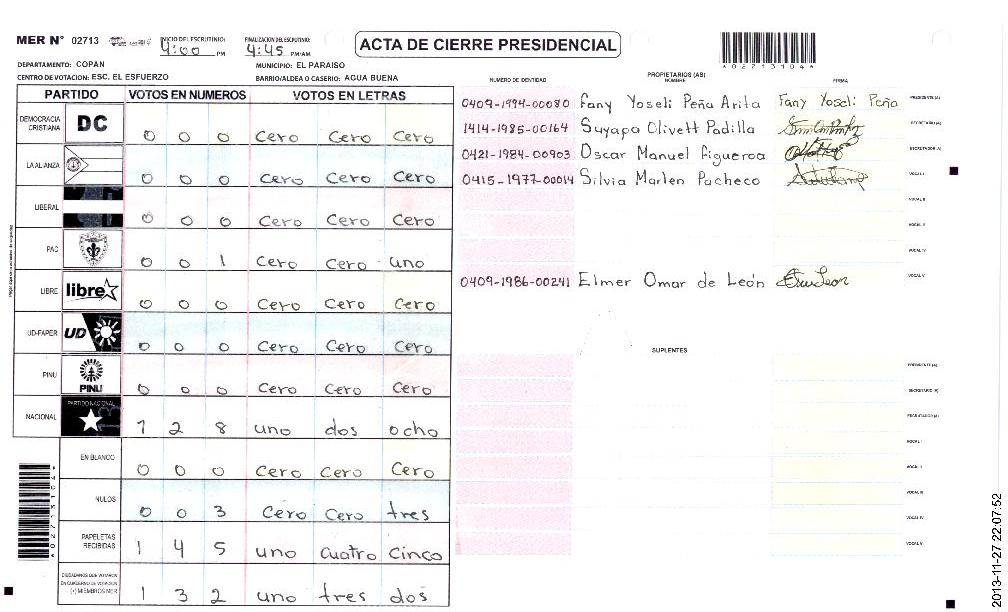 MER N° 02713
INICIO DEL ESCRUTINIO: 4:00 PM
FINALIZACIÓN DEL ESCRUTINIO: 4:45 PM/AM
ACTA DE CIERRE PRESIDENCIAL
*0271310 4*
DEPARTAMENTO: COPAN
MUNICIPIO: EL PARAISO
CENTRO DE VOTACION: ESC. EL ESFUERZO
BARRIO/ALDEA O CASERIO: AGUA BUENA
PARTIDO VOTOS EN NUMEROS VOTOS EN LETRAS
DEMOCRACIA CRISTIANA DC 0 0 0 Cero Cero Cero
LA ALIANZA 0 0 0 Cero Cero Cero
LIBERAL 0 0 0 Cero Cero Cero
PAC 0 0 1 Cero Cero uno
LIBRE libre 0 0 0 Cero Cero Cero
UD-FAPER UD 0 0 0 Cero Cero Cero
PINU PINU 0 0 0 Cero Cero Cero
NACIONAL PARTIDO NACIONAL 1 2 8 uno dos ocho
EN BLANCO 0 0 0 Cero Cero Cero
NULOS 0 0 3 Cero Cero tres
PAPELETAS RECIBIDAS 1 4 5 uno cuatro cinco
CIUDADANOS QUE VOTARON EN CUADERNO DE VOTACION (+) MIEMBROS MER 1 3 2 uno tres dos
PROPIETARIOS (AS)
NUMERO DE IDENTIDAD NOMBRE FIRMA
0409-1994-00080 Fany Yoseli Peña Arita Fany Yoseli Peña PRESIDENTE (A)
1414-1985-00164 Suyapa Olivett Padilla SECRETARIO (A)
0421-1984-00903 Oscar Manuel Figueroa ESCRUTADOR (A)
0415-1977-00014 Silvia Marlen Pacheco VOCAL I
VOCAL II
VOCAL III
VOCAL IV
0409-1986-00241 Elmer Omar de León VOCAL V
SUPLENTES
PRESIDENTE (A)
SECRETARIO (A)
ESCRUTADOR (A)
VOCAL I
VOCAL II
VOCAL III
VOCAL IV
VOCAL V
2013-11-27 22:07:52